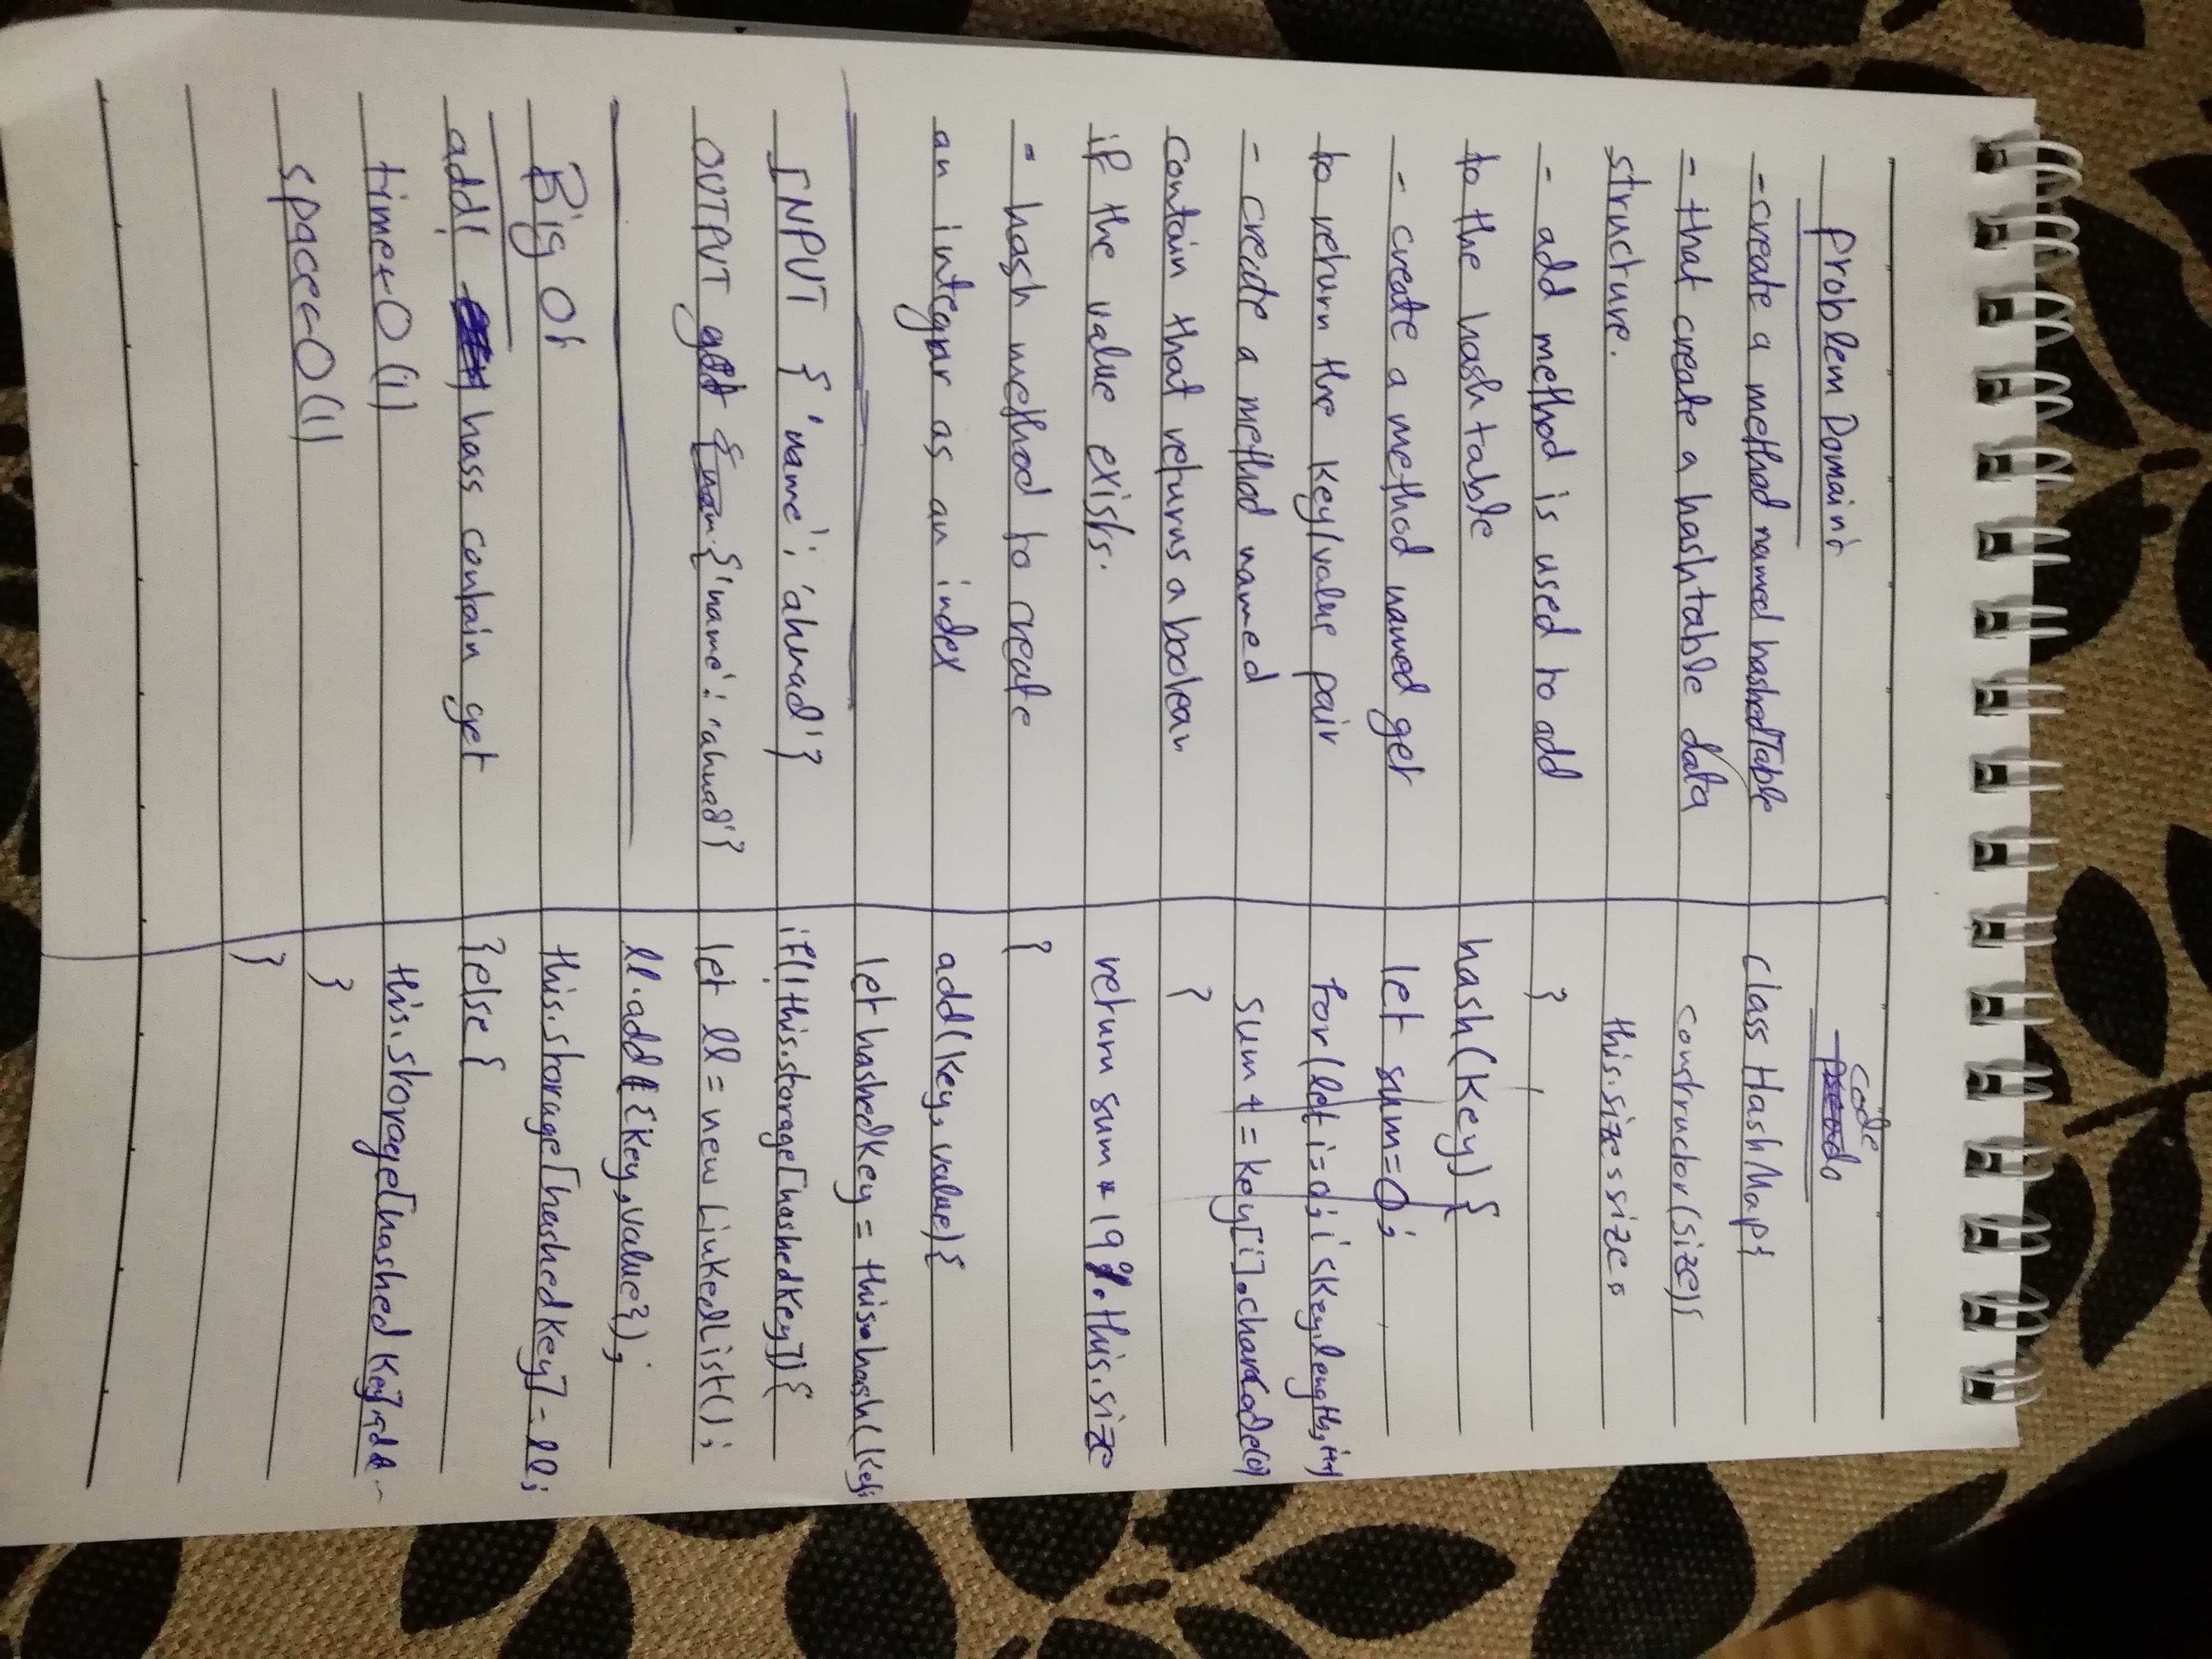 Problem Domain:
-create a method named hashedTable
- that create a hashtable data
structure.
- add method is used to add
to the hashtable
- create a method named get
to return the key/value pair
- create a method named
contain that returns a boolean
if the value exists.
- hash method to create
an integar as an index
INPUT { 'name': 'ahmad'}
OUTPUT get {'name': 'ahmad'}
Big O:
add! hass contain get
time←O(1)
space←O(1)
code
pseudo
class HashMap{
constructor(size){
this.size=size;
}
hash(key) {
let sum=0;
for(let i=0; i<key.length; i++)
sum += key[i].charCode(0)
}
return sum * 19 % this.size
}
add(key, value){
let hashedKey = this.hash(key
if(!this.storage[hashedKey]){
let ll = new LinkedList();
ll.add({key,value});
this.storage[hashedKey] = ll;
}else {
this.storage[hashedKey].add
}
}